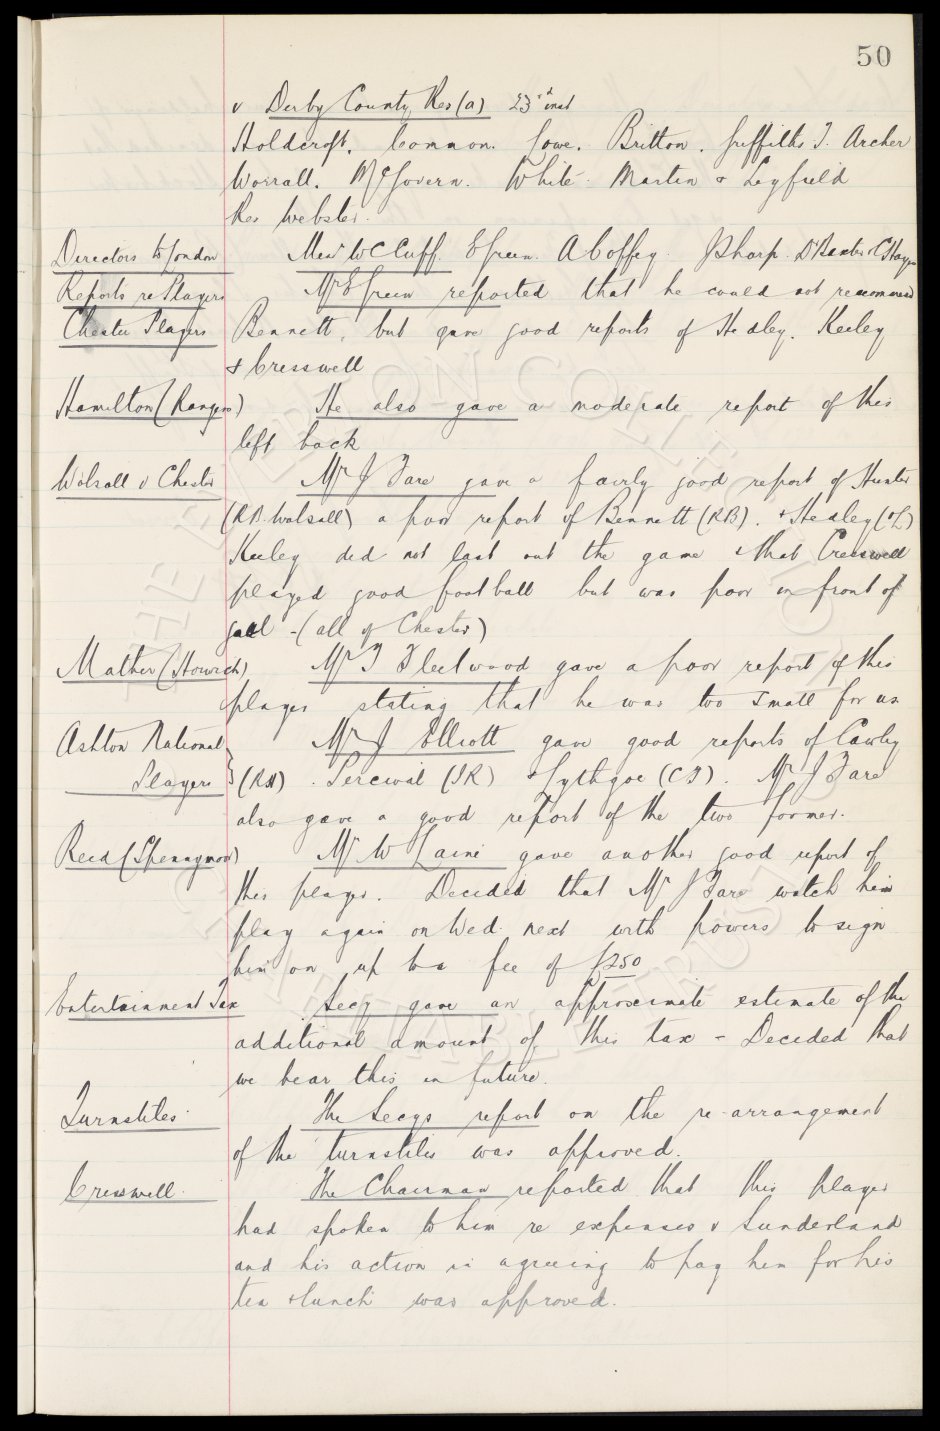 50
v Derby County Res (a) 23rd inst
Holdcroft. Common. Lowe. Britton. Griffiths T. Archer
Worrall. McGovern. White. Martin & Leyfield
Res Webster.
Directors to London Messrs W C Cuff. E Green. A Coffey. J Sharp. Dr Baxter & C Hayes
Reports re Players Mr E Green reported that he could not recommend
Chester Players Bennett, but gave good reports of Hedley, Keeley
& Cresswell
Hamilton (Rangers) He also gave a moderate report of this
left back
Walsall v Chester Mr J Fare gave a fairly good report of Hunter
(RB. Walsall) a poor report of Bennett (RB). & Hedley (OL)
Keeley did not last out the game & that Cresswell
played good football but was poor in front of
goal - (all of Chester)
Mather (Horwich) Mr T Fleetwood gave a poor report of this
player stating that he was too small for us.
Ashton National Mr J Elliott gave good reports of Cawley
Players } (RH). Percival (IR) & Lythgoe (CF). Mr J Fare
also gave a good report of the two former.
Reed (Spennymoor) Mr W Laine gave another good report of
this player. Decided that Mr J Fare watch him
play again on Wed. next with powers to sign
him on up to a fee of £250
Entertainment Tax Secy gave an approximate estimate of the
additional amount of this tax - Decided that
we bear this in future.
Turnstiles The Secys report on the re-arrangement
of the turnstiles was approved.
Cresswell. The Chairman reported that this player
had spoken to him re expenses v Sunderland
and his action in agreeing to pay him for his
tea & lunch was approved.